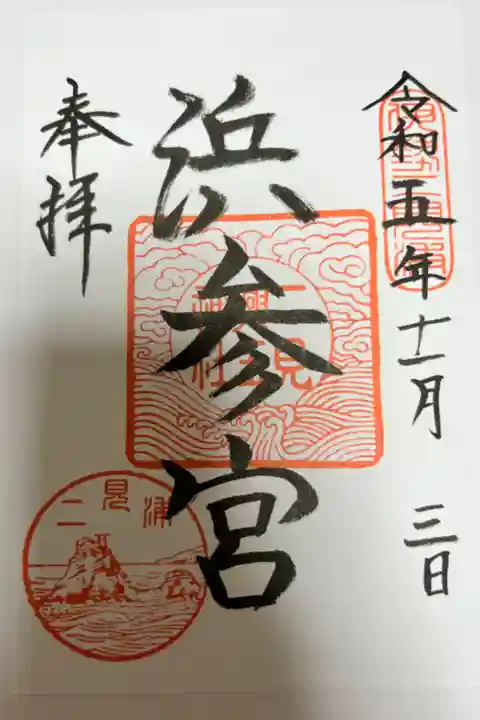 令和五年十一月三日
浜参宮
二見興玉神社
奉拝
二見浦